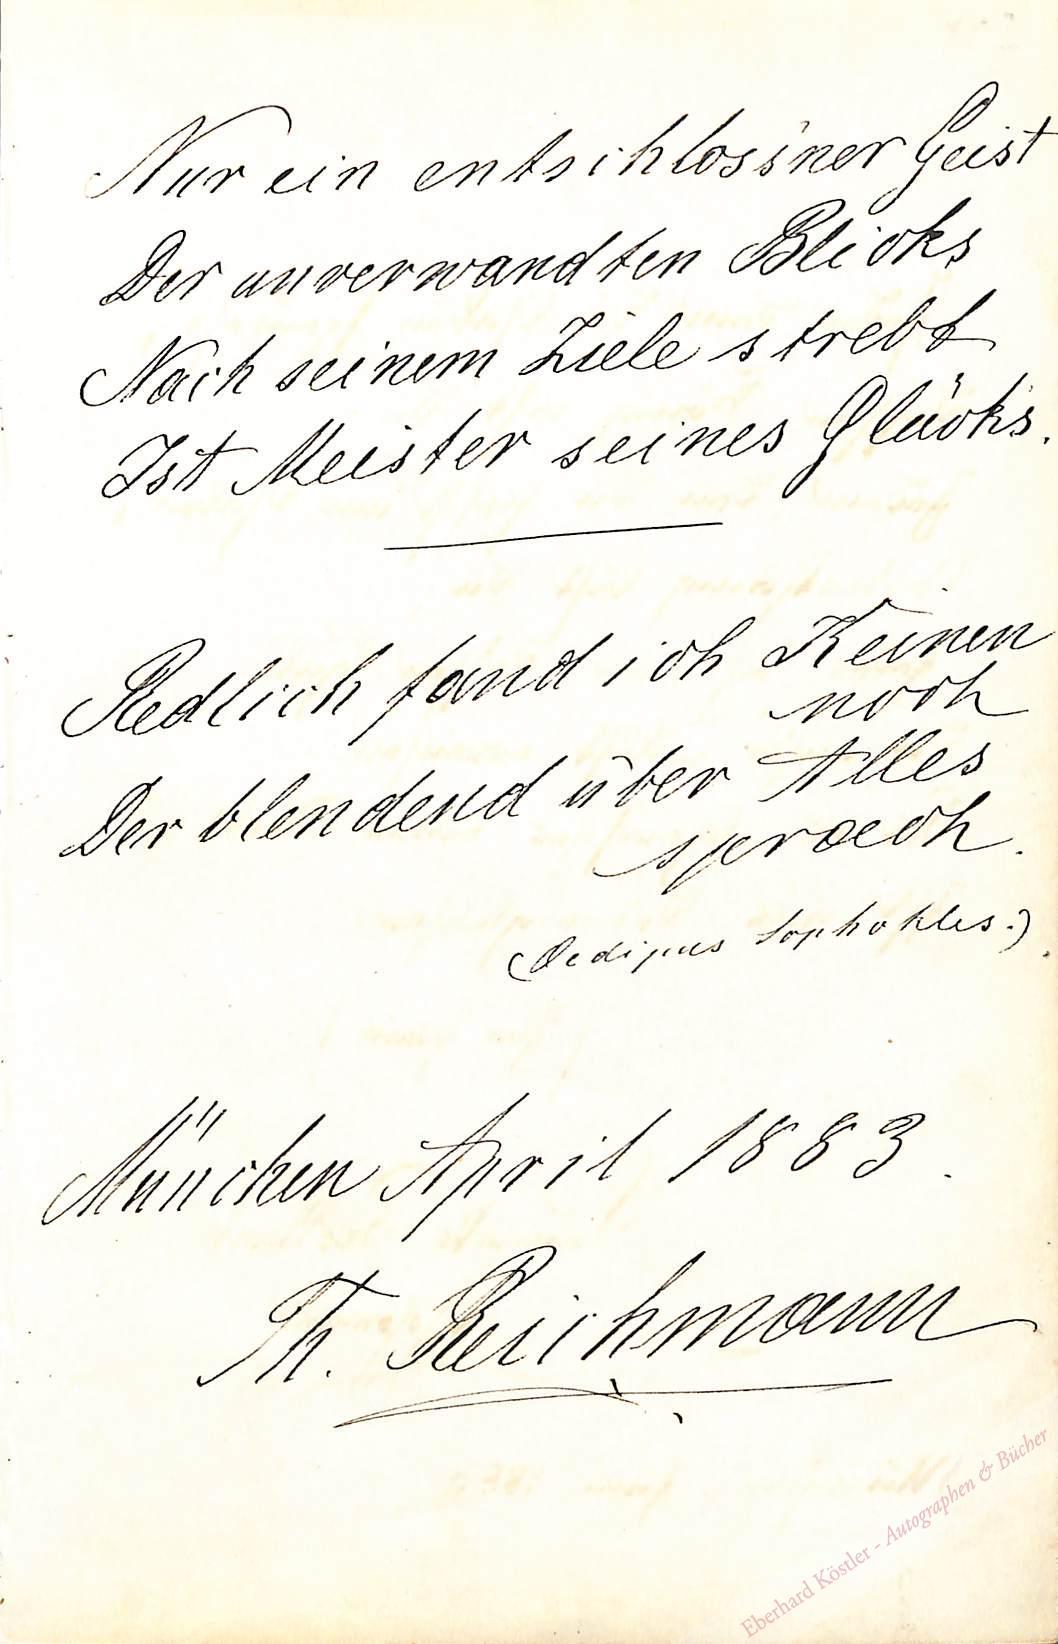 Nur ein entschloss'ner Geist
Der unverwandten Blicks
Nach seinem Ziele strebt
Ist Meister seines Glücks.
Redlich fand ich Keinen
noch
Der blendend über Alles
sprach.
(Oedipus Sophokles.)
München April 1883.
Th. Reichmann
Eberhard Köstler - Autographen & Bücher